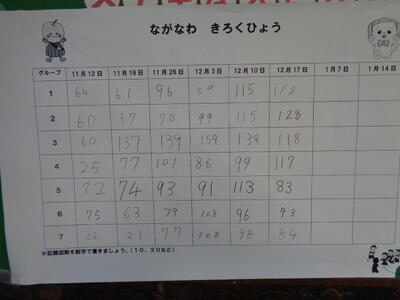 ながなわ きろくひょう
グループ 11月12日 11月19日 11月26日 12月3日 12月10日 12月17日 1月7日 1月14日
1 64 61 96 115 118
2 60 37 70 99 115 128
3 60 137 139 159 139 118
4 25 77 101 86 99 117
5 72 74 93 91 113 83
6 75 63 79 108 96 93
7 32 21 77 108 98 84
※記録回数を数字で書きましょう。(10、20など)